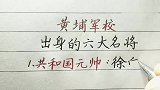 黄埔军校
出身的六大名将
1.共和国元帅:徐